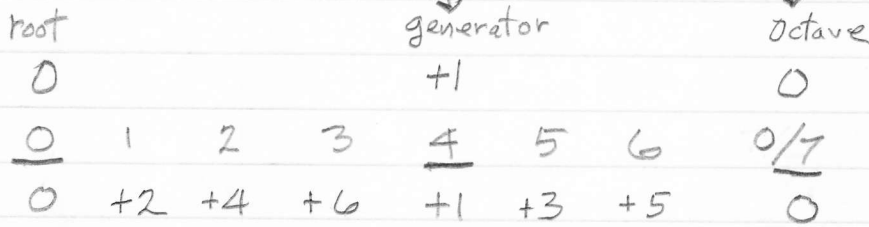 root generator Octave
0 +1 0
0 1 2 3 4 5 6 0/7
0 +2 +4 +6 +1 +3 +5 0